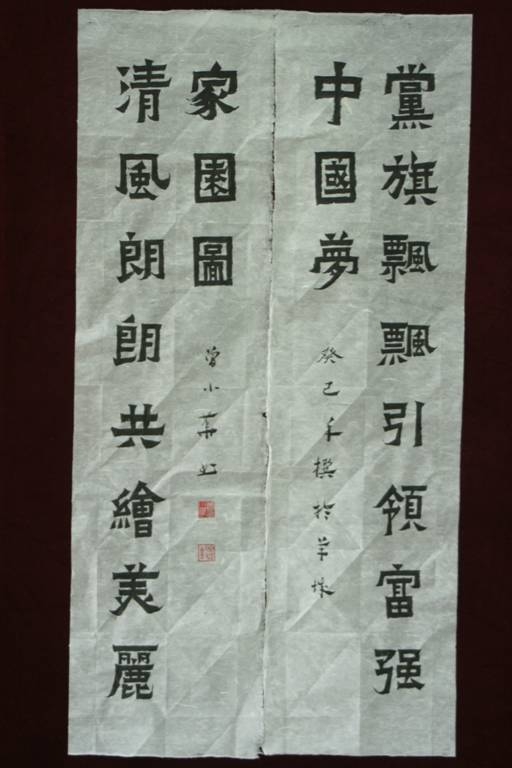 黨旗飄飄引領富强
中國夢
癸巳年撰於羊城
清風朗朗共繪美麗
家園圖
曾小華